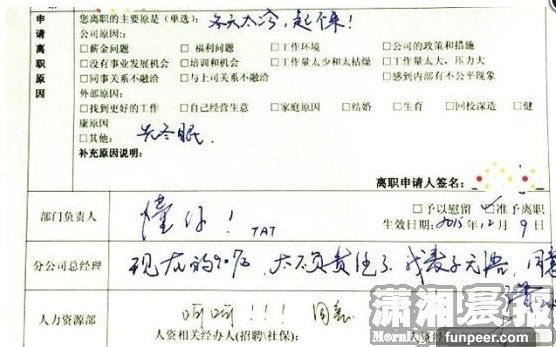 申请离职原因
您离职的主要原是(单选): 冬天太冷,起不来!
公司原因:
□薪金问题 □福利问题 □工作环境 □公司的政策和措施
□没有事业发展机会 □培训和机会 □工作量太少和太枯燥 □工作量太大,压力大
□同事关系不融洽 □与上司关系不融洽 □感到内部有不公平现象
外部原因:
□找到更好的工作 □自己经营生意 □家庭原因 □结婚 □生育 □回校深造 □健
康原因
□其他: 先冬眠.
补充原因说明:
离职申请人签名:
部门负责人 懂你! TAT
□予以慰留 □准予离职
生效日期: 2015. 12月9日
分公司总经理 现在的90后,太不负责任了,我表示无语,同意
人力资源部 呵呵!!! 同意
人资相关经办人(招聘\社保): 人资
潇湘晨报
Morning
funpeer.com